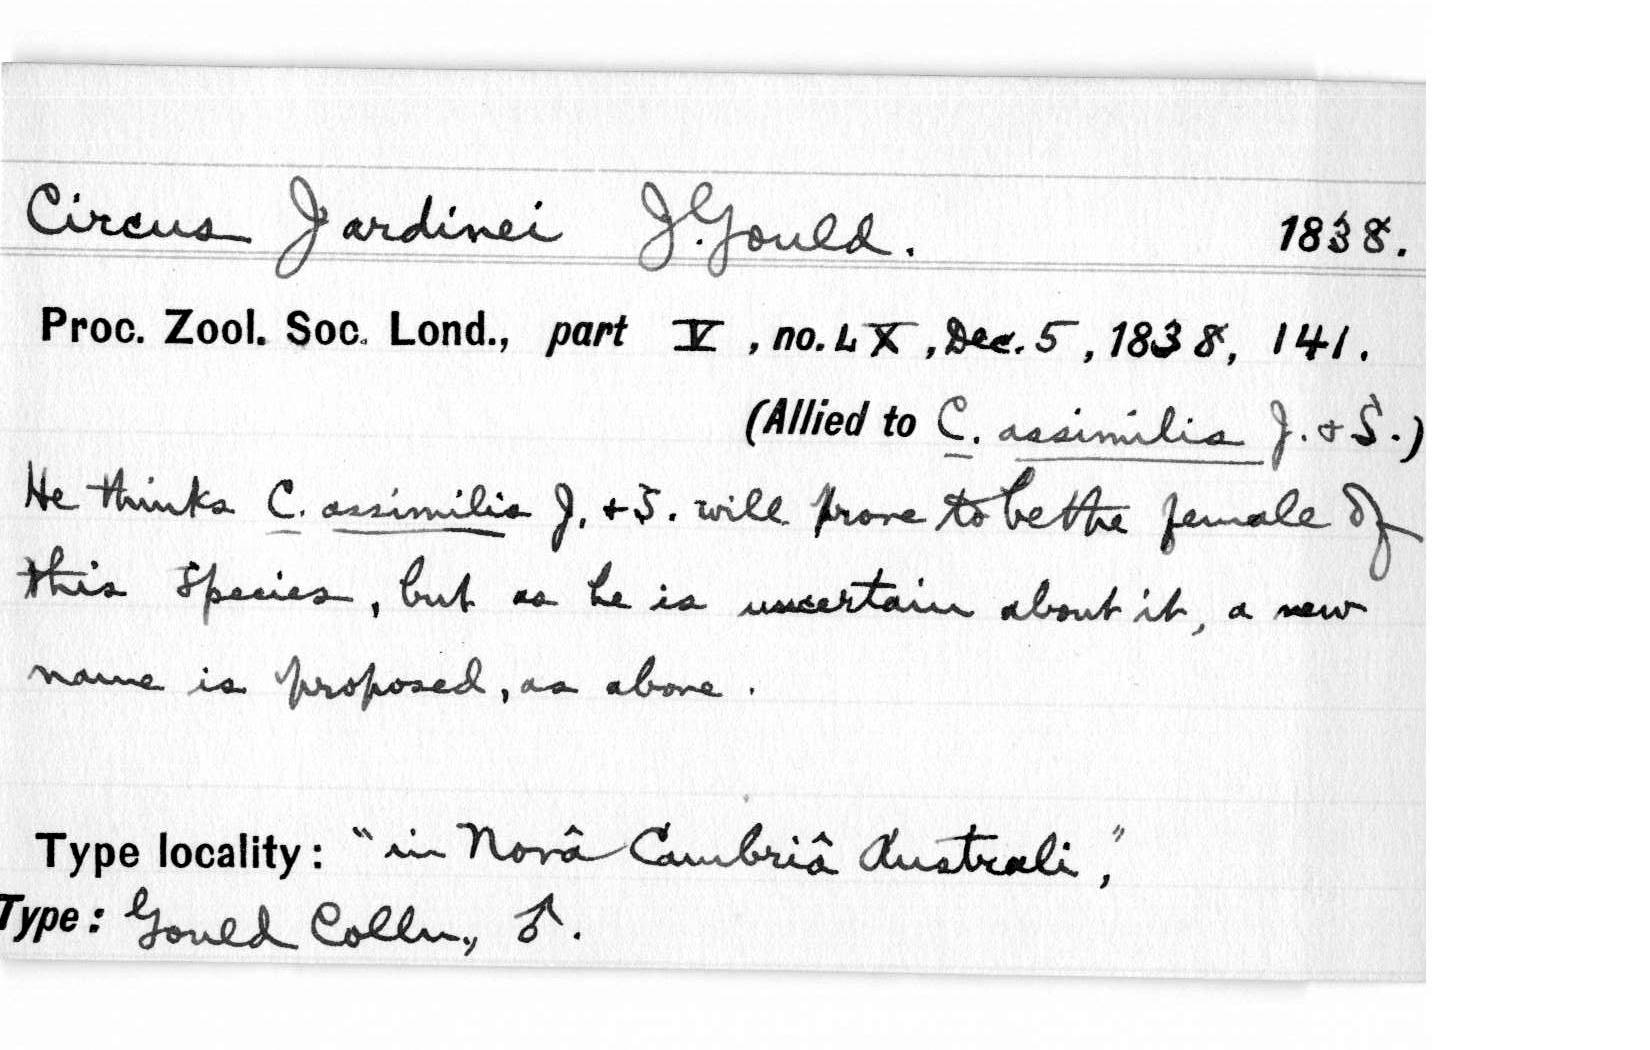 Circus Jardinei J. Gould. 1838.
Proc. Zool. Soc. Lond., part V, no. LX, Dec. 5, 1838, 141.
(Allied to C. assimilis J. + S.)
He thinks C. assimilis J. + S. will prove to be the female of
this species, but as he is uncertain about it, a new
name is proposed, as above.
Type locality: "in Novâ Cambriâ Australi,"
Type: Gould Colln., ♂.